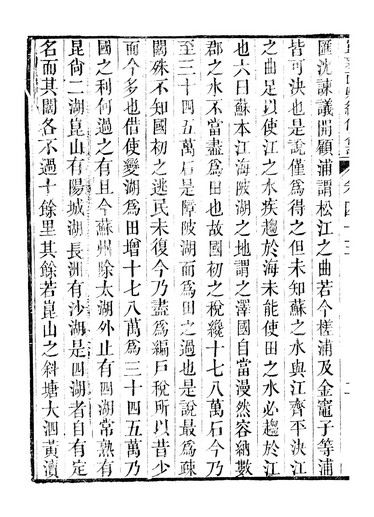 匯沈諫議開顧浦謂松江之曲若今槎浦及金竈子等浦
皆可決也是說僅爲得之但未知蘇之水與江齊平決江
之曲足以使江之水疾趨於海未能使田之水必趨於江
也六曰蘇本江海陂湖之地謂之澤國自當漫然容納數
郡之水不當盡爲田也故國初之稅纔十七八萬石今乃
至三十四五萬石是障陂湖而爲田之過也是說最爲疎
闊殊不知國初之逃民未復今乃盡爲編戶稅所以昔少
而今多也借使變湖爲田增十七八萬爲三十四五萬乃
國之利何過之有且今蘇州除太湖外止有四湖常熟有
昆尙二湖崑山有陽城湖長洲有沙湖是四湖者自有定
名而其闊各不過十餘里其餘若崑山之斜塘大泗黃瀆